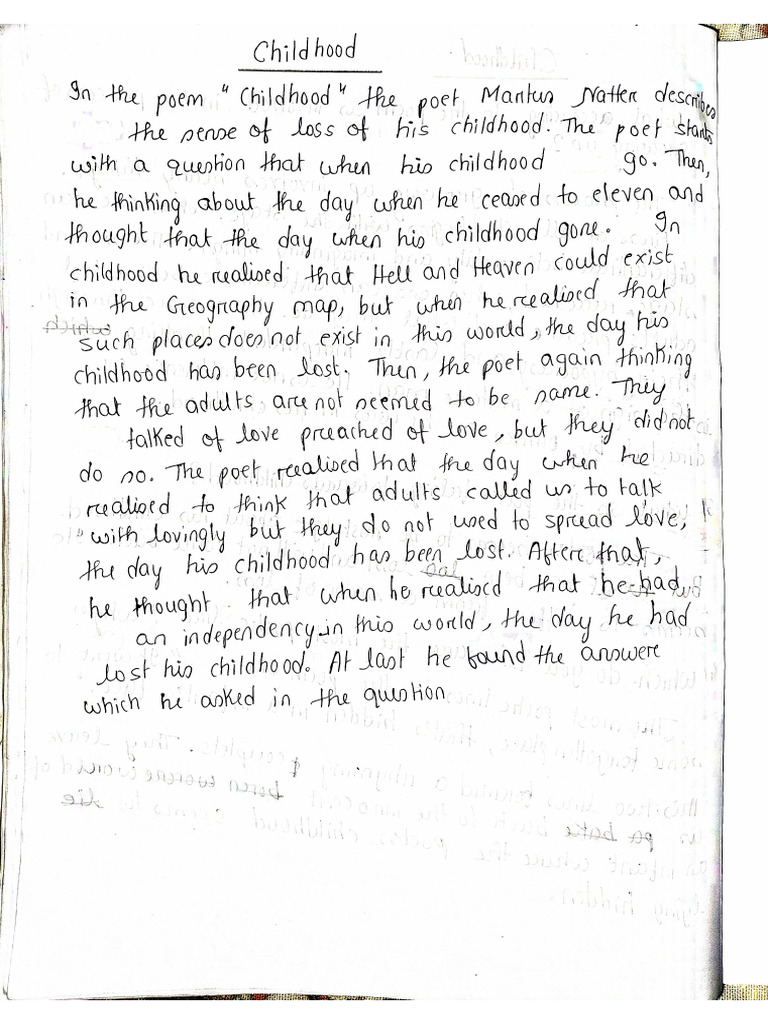 Childhood
In the poem "Childhood" the poet Markus Natter describes
the sense of loss of his childhood. The poet starts
with a question that when his childhood go. Then,
he thinking about the day when he ceased to eleven and
thought that the day when his childhood gone. In
childhood he realised that Hell and Heaven could exist
in the Geography map, but when he realised that
such places does not exist in this world, the day his
childhood has been lost. Then, the poet again thinking
that the adults are not seemed to be same. They
talked of love preached of love, but they did not
do so. The poet realised that the day when he
realised to think that adults called us to talk
"with lovingly but they do not used to spread love,
the day his childhood has been lost. After that,
he thought that when he realised that he had
an independency in this world, the day he had
lost his childhood. At last he found the answere
which he asked in the question